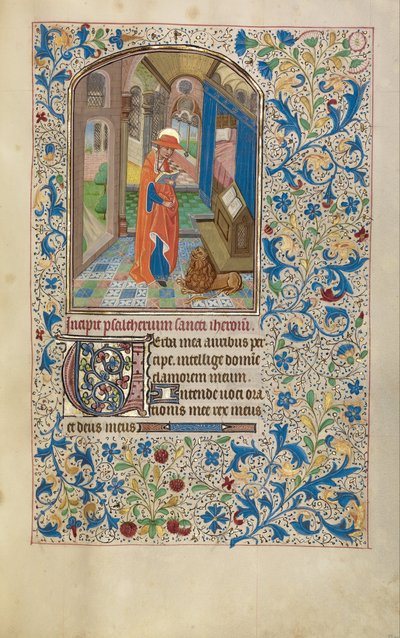 Incipit psaltherium sancti iheronimi.
Verba mea auribus per
cipe. intellige domine
clamorem meum.
Intende voci ora
tionis mee rex meus
et deus meus